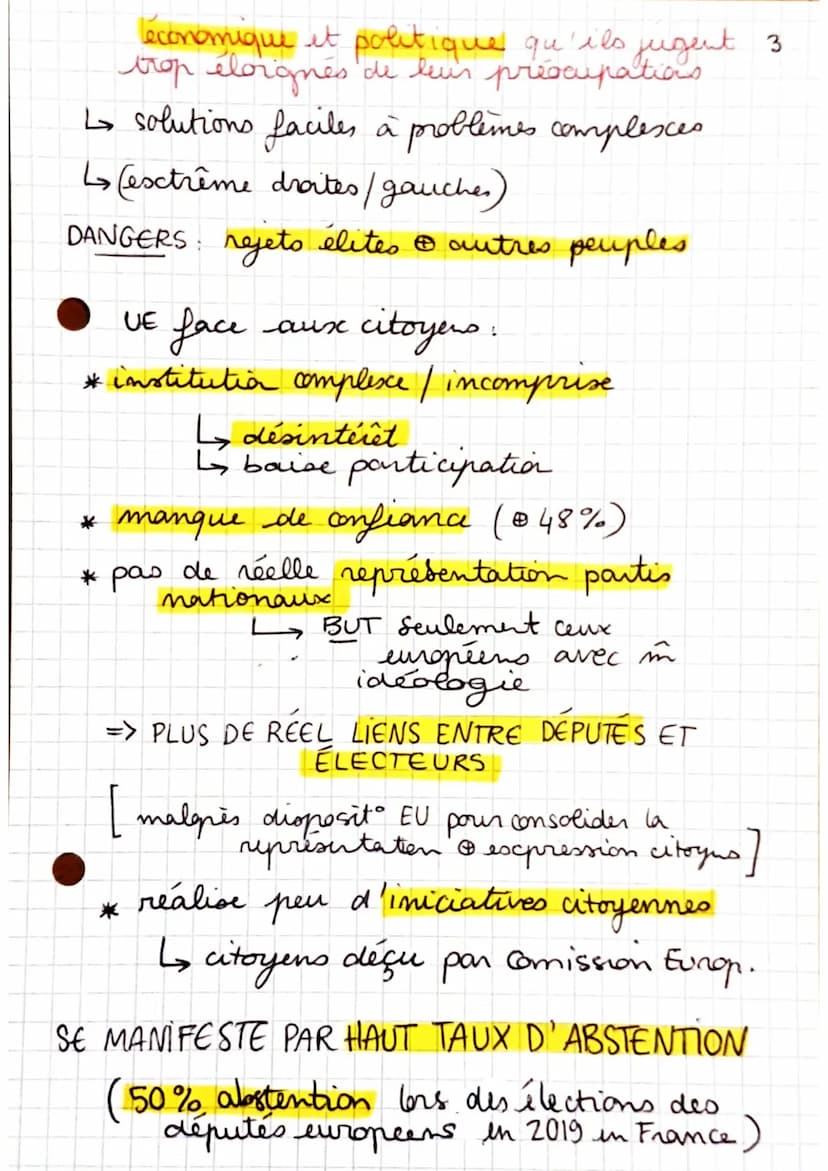 économique et politique qu'ils jugent 3
trop éloignés de leur préocupations
↳ solutions faciles à problèmes complexces
↳ (esctrême droites/gauches)
DANGERS : rejets élites ⊕ autres peuples
UE face aux citoyens :
* institution complexe / incomprise
↳ désintérêt
↳ baisse participation
* manque de confiance (⊕ 48%)
* pas de réelle représentation partis
nationaux
↳ BUT seulement ceux
européens avec m̂
idéologie
=> PLUS DE RÉEL LIENS ENTRE DÉPUTÉS ET
ÉLECTEURS
[ malgrès disposit° EU pour consolider la
représentation ⊕ expression citoyens ]
* réalise peu d'iniciatives citoyennes
↳ citoyens déçu par Comission Europ.
SE MANIFESTE PAR HAUT TAUX D'ABSTENTION
(50% abstention lors des élections des
députés européens en 2019 en France)